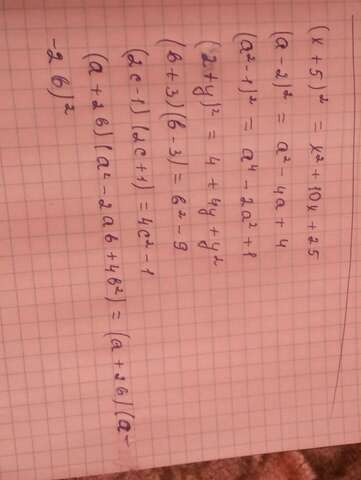 (x + 5)² = x² + 10x + 25
(a - 2)² = a² - 4a + 4
(a² - 1)² = a⁴ - 2a² + 1
(2 + y)² = 4 + 4y + y²
(b + 3)(b - 3) = b² - 9
(2c - 1)(2c + 1) = 4c² - 1
(a + 2b)(a² - 2ab + 4b²) = (a + 2b)(a -
- 2b)²